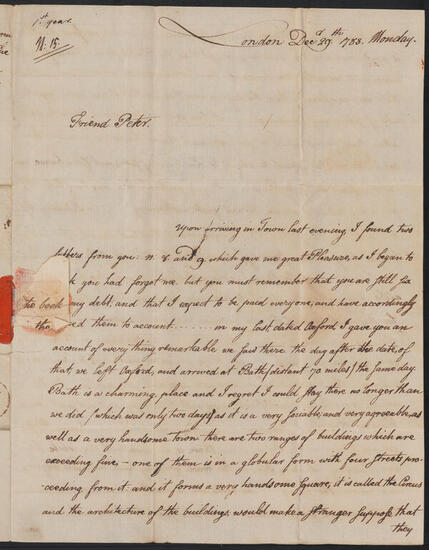 1st year.
N. 15.
London Decr 29th 1788. Monday.
Friend Peter.
Upon arriving in Town last evening I found two
letters from you. n. 8 and 9 which gave me great Pleasure, as I began to
you had forgot me. but you must remember that you are still
the book my debt, and that I expect to be paid everyone, and have accordingly
the them to account ........ in my last, dated Oxford I gave you an
account of every thing remarkable we saw there the day after the date, of
that, we left Oxford, and arrived at Bath (distant 70 miles) the same day
Bath is a charming place and I regret I could stay there no longer than
we did (which was only two days) as it is a very sociable, and very agreeable, as
well as a very handsome Town there are two ranges of buildings which are
exceeding fine, – one of them is in a globular form with four streets pro-
-ceeding from it – and it forms a very handsome Square, it is called the
and the architecture of the buildings, would make a stranger suppose that
they